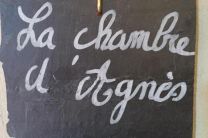 La chambre
d'Agnès